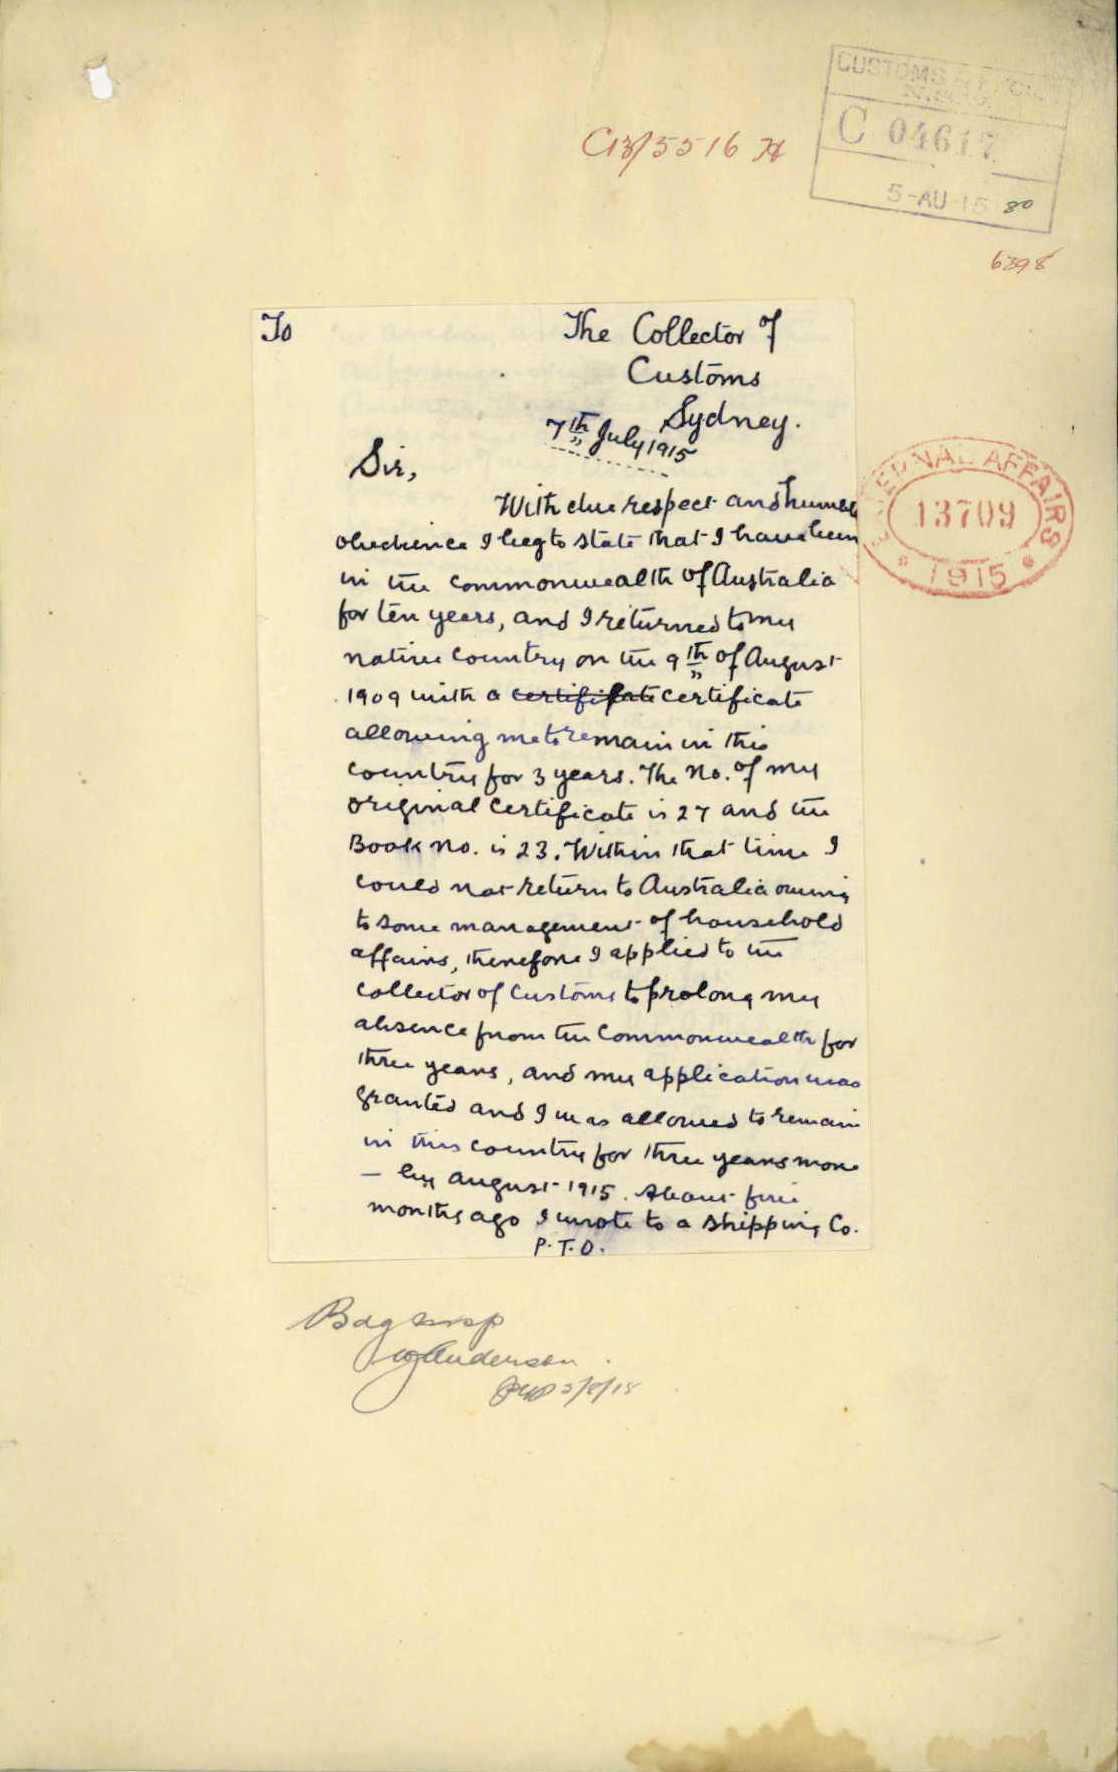 C13/5516
C 04617
5-AU 15 80
6398
To The Collector of
Customs
Sydney.
7th July 1915
Sir,
With due respect and humble
obedience I beg to state that I have been
in the commonwealth of Australia
for ten years, and I returned to my
native country on the 9th of August
1909 with a certificate
allowing me to remain in this
country for 3 years. The No. of my
original certificate is 27 and the
Book no. is 23. Within that time I
could not return to Australia owing
to some management of household
affairs, therefore I applied to the
collector of customs to prolong my
absence from the Commonwealth for
three years, and my application was
granted and I was allowed to remain
in this country for three years more
— by August 1915. About five
months ago I wrote to a shipping Co.
P.T.O.
EXTERNAL AFFAIRS
13709
* 1915 *
Anderson